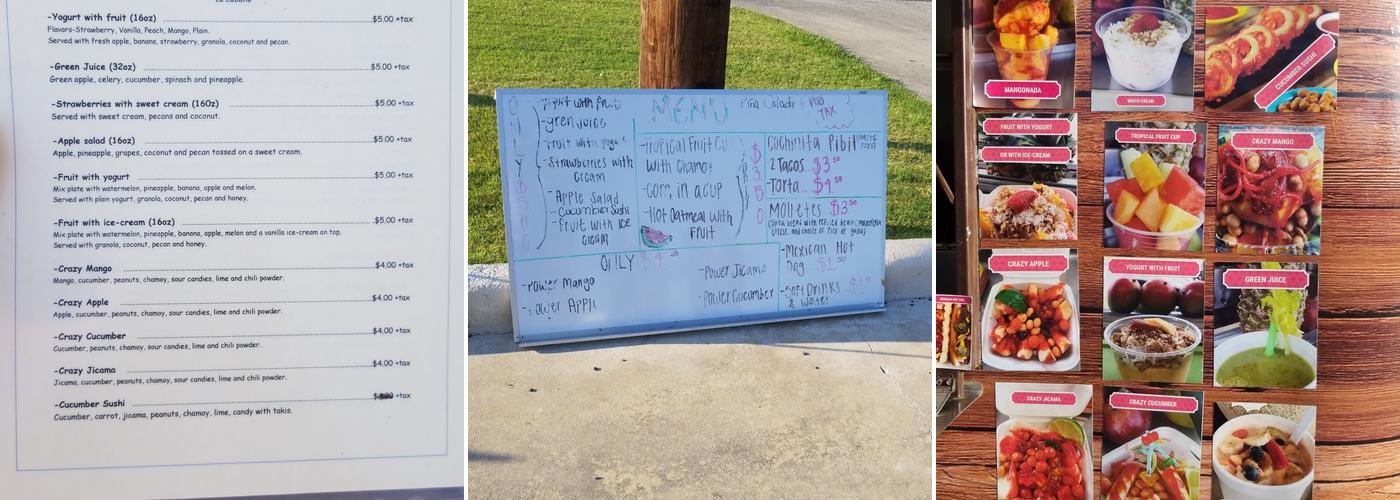 La Cabana
-Yogurt with fruit (16oz) $5.00 +tax
Flavors-Strawberry, Vanilla, Peach, Mango, Plain.
Served with fresh apple, banana, strawberry, granola, coconut and pecan.
-Green Juice (32oz) $5.00 +tax
Green apple, celery, cucumber, spinach and pineapple.
-Strawberries with sweet cream (160z) $5.00 +tax
Served with sweet cream, pecans and coconut.
-Apple salad (16oz) $5.00 +tax
Apple, pineapple, grapes, coconut and pecan tossed on a sweet cream.
-Fruit with yogurt $5.00 +tax
Mix plate with watermelon, pineapple, banana, apple and melon.
Served with plain yogurt, granola, coconut, pecan and honey.
-Fruit with ice-cream (16oz) $5.00 +tax
Mix plate with watermelon, pineapple, banana, apple, melon and a vanilla ice-cream on top.
Served with granola, coconut, pecan and honey.
-Crazy Mango $4.00 +tax
Mango, cucumber, peanuts, chamoy, sour candies, lime and chili powder.
-Crazy Apple $4.00 +tax
Apple, cucumber, peanuts, chamoy, sour candies, lime and chili powder.
-Crazy Cucumber $4.00 +tax
Cucumber, peanuts, chamoy, sour candies, lime and chili powder.
-Crazy Jicama $4.00 +tax
Jicama, cucumber, peanuts, chamoy, sour candies, lime and chili powder.
-Cucumber Sushi +tax
Cucumber, carrot, jicama, peanuts, chamoy, lime, candy with takis.
MENU
Piña Colada
TAX
-Yogurt with fruit
-gren juice
Fruit with
-Strawberries with
Cream
-Apple Salad
-Cucumber Sushi
-Fruit with Ice
Cream
-Tropical Fruit Cup
With Chamoy
-Corn in a cup
-Hot Oatmeal With
Fruit
Cochinita Pibil
2 Tacos $3.50
Torta $4.50
Molletes $3.50
-Mexican Hot
Dog $1.50
-Soft Drinks
& Water
ONLY $4.50
-Power Mango
-Power Apple
-Power Jicama
-Power Cucumber
MANGONADA
WHITH CREAM
CUCUMBER SUSHI
FRUIT WITH YOGURT
OR WITH ICE-CREAM
TROPICAL FRUIT CUP
CRAZY MANGO
CRAZY APPLE
YOGURT WITH FRUIT
GREEN JUICE
CRAZY JICAMA
CRAZY CUCUMBER